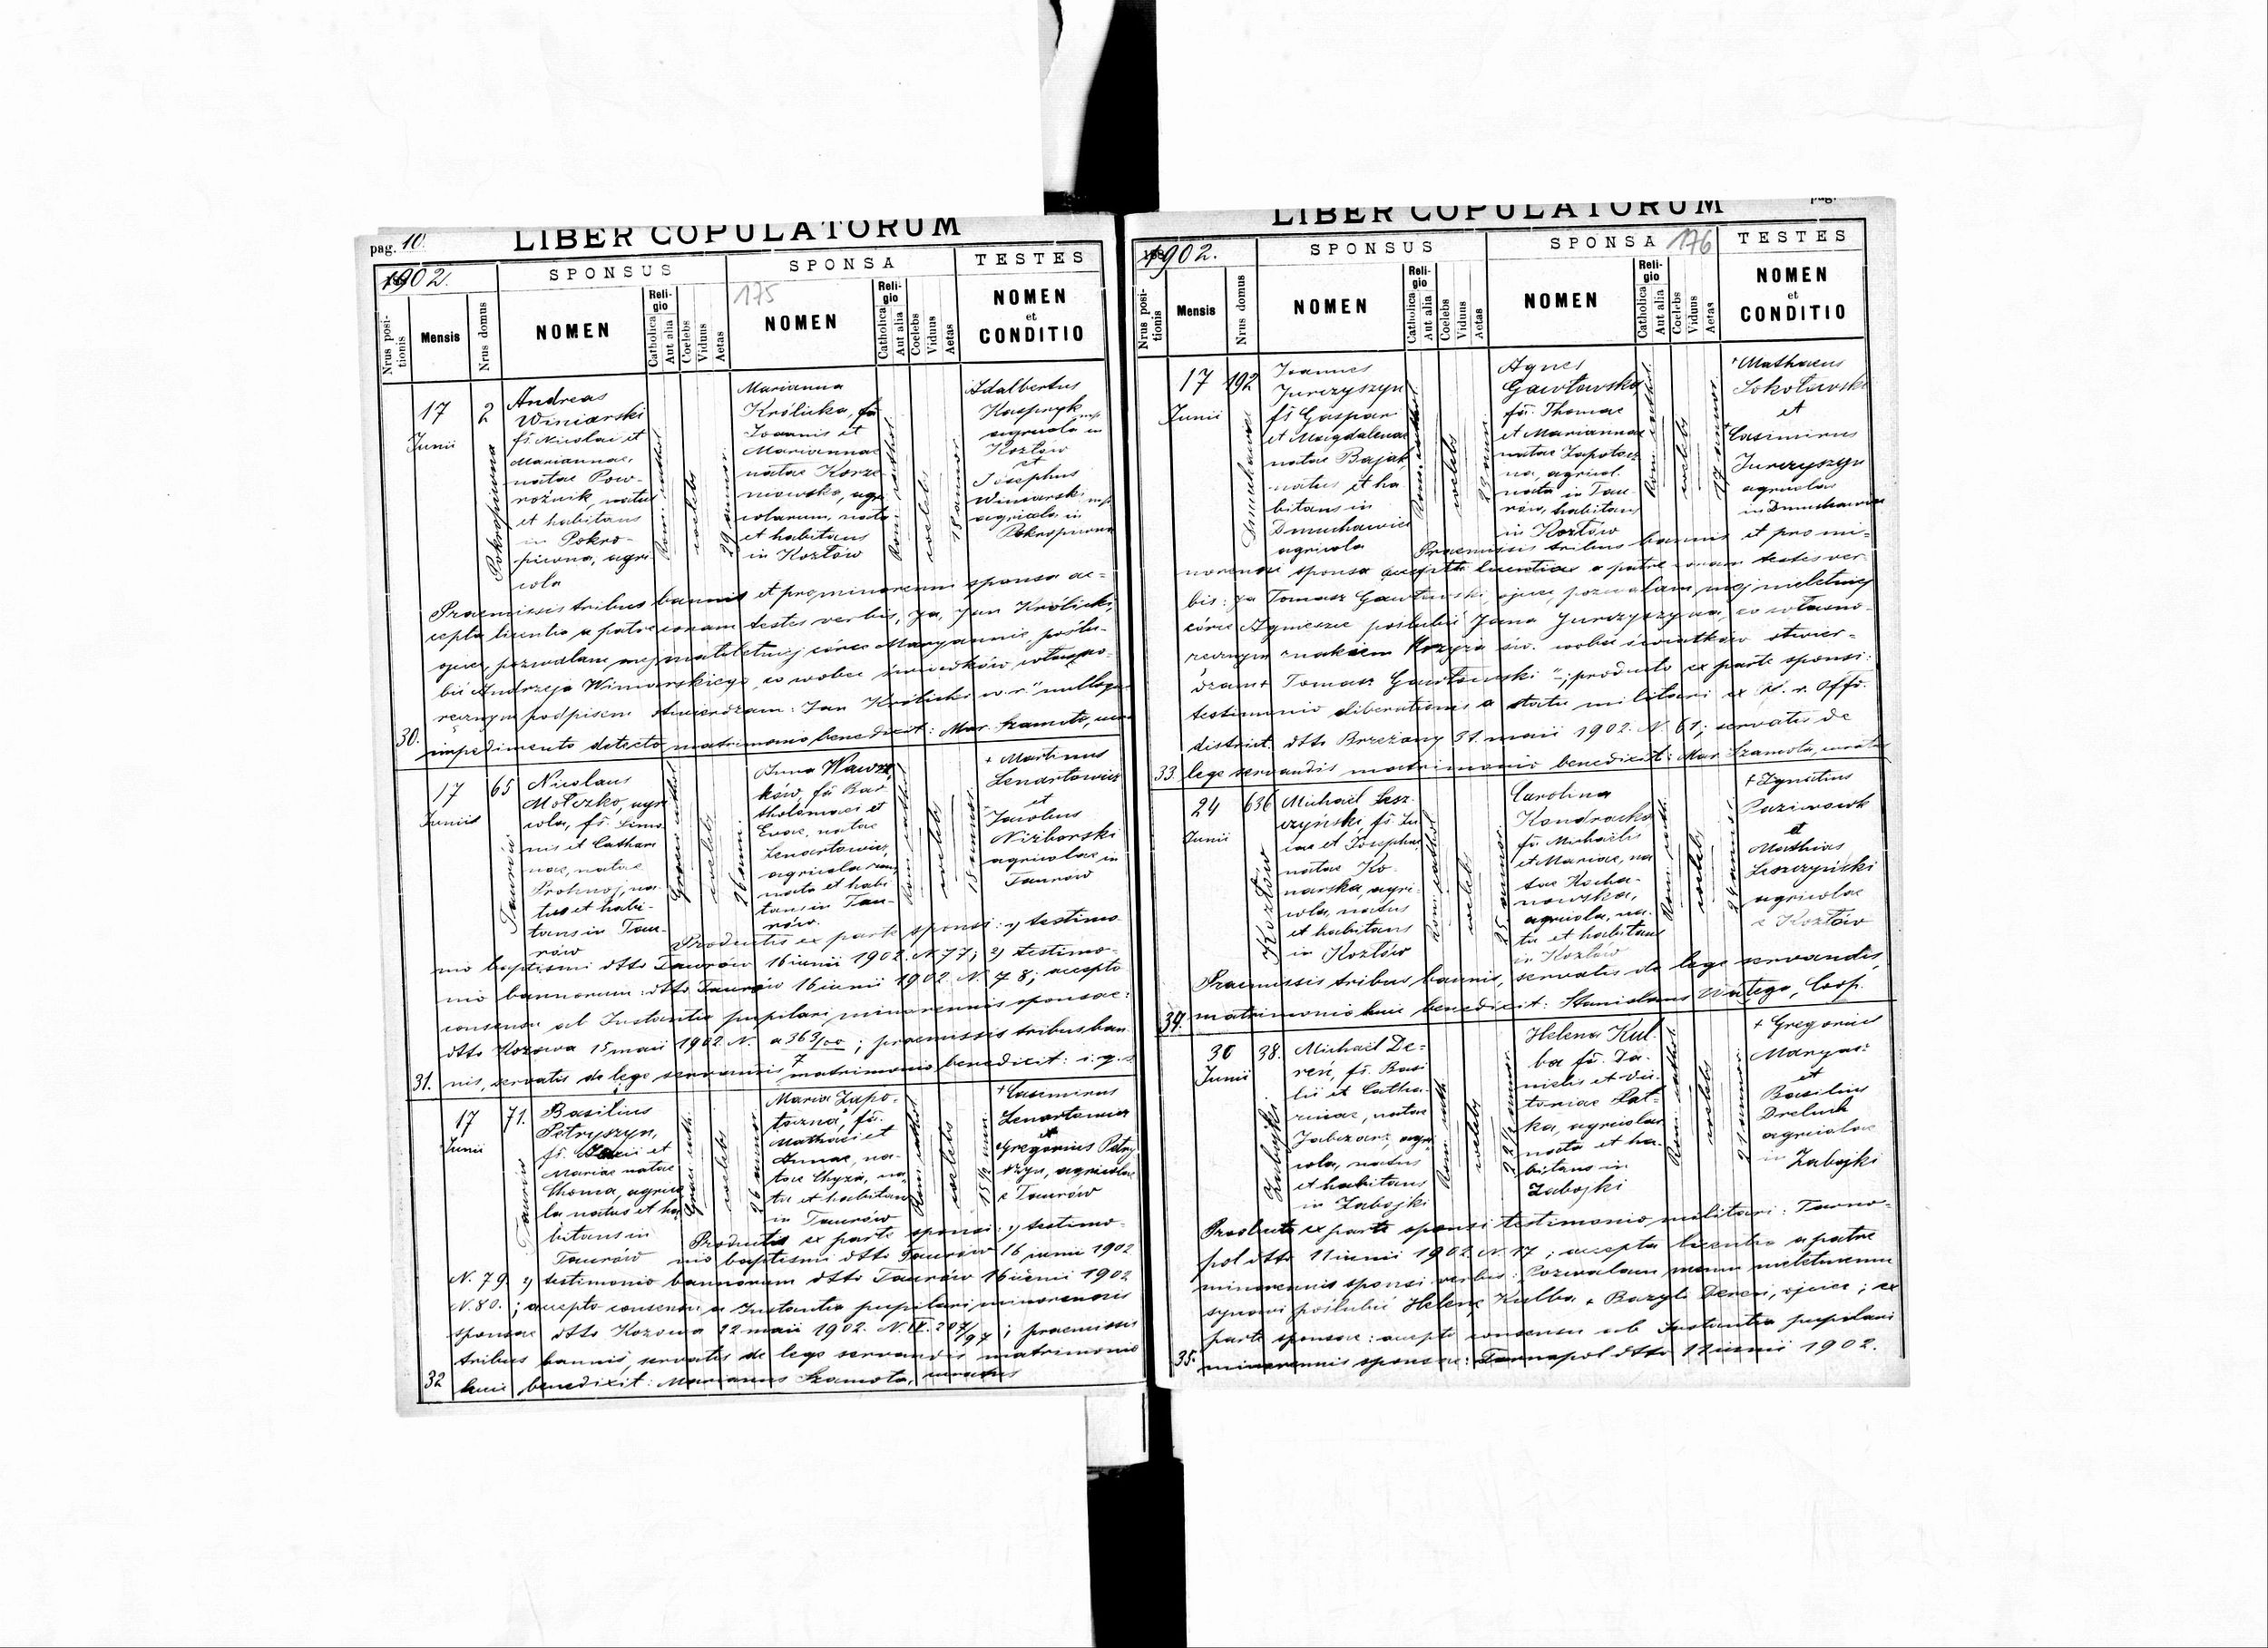 pag. 10.
LIBER COPULATORUM
1902.
SPONSUS
SPONSA
TESTES
Nrus posi-
tionis
Mensis
Nrus domus
NOMEN
Reli-
gio
Catholica
Aut alia
Coelebs
Viduus
Aetas
175
NOMEN
Reli-
gio
Catholica
Aut alia
Coelebs
Viduus
Aetas
NOMEN
et
CONDITIO
17
Junii
2
Pokropiwna
Andreas
Winiarski
fs Nicolai et
Mariannae,
natae Pow-
roźnik, natus
et habitans
in Pokro-
piwna, agri
cola
Rom. cathol.
coelebs
29 annor.
Marianna
Królicka, fa
Joannis et
Mariannae
natae Korze
niowska, agri
colarum, nata
et habitans
in Kozłów
Rom. cathol.
coelebs
18 annor.
Adalbertus
Kasprzyk
agricola in
Kozłów
et
Josephus
Winiarski
agricola in
Pokropiwna
Praemissis tribus bannis et pro minorenni sponsa ac-
cepta licentia a patre coram testes verbis, Ja, Jan Królicki,
ojciec, pozwalam mej małoletniej córce Maryannie, poślu-
bić Andrzeja Winiarskiego, co wobec świadków własno-
ręcznym podpisem stwierdzam: Jan Królicki w. r." nulloque
30. impedimento detecto matrimonio benedixit: Mar. Szamota,
17
Junii
65
Taurów
Nicolaus
Mołczko, agri
cola, fs. Simo
nis et Cathari
nae, natae
na-
tus et habi-
tans in Tau-
rów
coelebs
26 ann.
Anna Wawrz
ków, fa Bar
tholomaei et
Evae, natae
Lenartowicz,
agricolarum,
nata et habi
tans in Tau-
rów.
Rom. cathol.
coelebs
18 annor.
+ Martinus
Lenartowicz
et
Jacobus
Niżborski
agricolae in
Taurów
Productis ex parte sponsi: 1) testimo
nio baptismi dtto Taurów 16 iunii 1902. N. 77; 2) testimo-
nio bannorum: dtto Taurów 16 iunii 1902 N. 78; accepto
consensu ab Instantia pupilari minorennis sponsae:
dtto Kozowa 15 maii 1902. N. a 363/00; praemissis tribus ban
7
31. nis, servatis de lege servandis matrimonio benedixit: i. q. s.
17
Junii
71.
Taurów
Basilius
Petryszyn,
fs. et
Mariae natae
Choma, agrico
la natus et ha
bitans in
Taurów
coelebs
26 annor.
Maria Zapo-
toczna, fa.
Mathaei et
Annae, na-
tae Chyza, na
ta et habitans
in Taurów
Rom. cathol.
coelebs
18 1/2 ann.
+ Casimirus
Lenartowicz
et
Gregorius Petry
szyn, agricolae
e Taurów
Productis ex parte sponsi: 1) testimo-
nio baptismi dtto Taurów 16 iunii 1902
N. 79. 2) testimonio bannorum dtto Taurów 16 iunii 1902
N. 80.; accepto consensu a Instantia pupilari minorennis
sponsae dtto Kozowa 22 maii 1902. N. IX. 207/97; praemissis
tribus bannis, servatis de lege servandis matrimonio
32 huic benedixit: Marianus Szamota, curatus
LIBER COPULATORUM
pag.
1902.
SPONSUS
SPONSA
176
TESTES
Nrus posi-
tionis
Mensis
Nrus domus
NOMEN
Reli-
gio
Catholica
Aut alia
Coelebs
Viduus
Aetas
NOMEN
Reli-
gio
Catholica
Aut alia
Coelebs
Viduus
Aetas
NOMEN
et
CONDITIO
17
Junii
192
Dmuchawiec
Joannes
Jurczyszyn
fs Gaspari
et Magdalenae
natae Bajak
natus et ha
bitans in
Dmuchawiec
agricola
Rom. cathol.
coelebs
23 annor.
Agnes
Gawłowska,
fa. Thomae
et Mariannae
natae Zapotocz
na, agricol.
nata in Tau
rów, habitans
in Kozłów
Rom. cathol.
coelebs
17 annor.
+ Mathaeus
Sokołowski
et
+ Casimirus
Jurczyszyn
agricolae
in Dmuchawiec
Praemissis tribus bannis et pro mi-
norenni sponsa accepta licentia a patre coram testes ver-
bis: Ja Tomasz Gawłowski, ojciec, pozwalam mej nieletniej
córce Agnieszce poślubić Jana Jurczyszyna, co własno-
ręcznym znakiem Krzyża św. wobec świadków stwier-
dzam + Tomasz Gawłowski"; producto ex parte sponsi:
testimonio liberationis a statu militari ex K. r. Offo.
district. dtto Brzeżany 31. maii 1902. N. 61; servatis de
33. lege servandis matrimonio benedixit: Mar. Szamota, curatus
24
Junii
636
Kozłów
Michael Lesz-
czyński, fs. Lu
cae et Josephae,
natae Ko-
narska, agri-
cola, natus
et habitans
in Kozłów
Rom. cathol.
coelebs
25 annor.
Carolina
Kondracka
fa Michaelis
et Mariae, na
tae Kocha-
nowska,
agricola, na-
ta et habitans
in Kozłów
Rom. cath.
coelebs
24 annor.
+ Ignatius
Paziowski
et
Mathias
Leszczyński
agricolae
e Kozłów
Praemissis tribus bannis, servatis de lege servandis,
34. matrimonio huic benedixit: Stanislaus Wałęga, Coop.
30
Junii
38.
Zabojki
Michael De-
reń, fs. Basi
lii et Catha-
rinae, natae
agri
cola, natus
et habitans
in Zabojki
Rom. cath.
coelebs
22 1/2 annor.
Helena Kul-
ba fa. Da-
nielis et Vic
toriae Łat-
ka, agricolar
nata et ha-
bitans in
Zabojki
Rom. cathol.
coelebs
21 annor.
+ Gregorius
Maryasz
et
Basilius
Dreluch
agricolae
in Zabojki
Producto ex parte sponsi testimonio militari: Tarno-
pol dtto 11 iunii 1902 N. 17; accepta licentia a patre
minorennis sponsi verbis: Pozwalam memu nieletniemu
synowi poślubić Helenę Kulba + Bazyli Dereń, ojciec; ex
parte sponsae: accepto consensu ab Instantia pupilari
35. minorennis sponsae: Tarnopol dtto 12 iunii 1902.